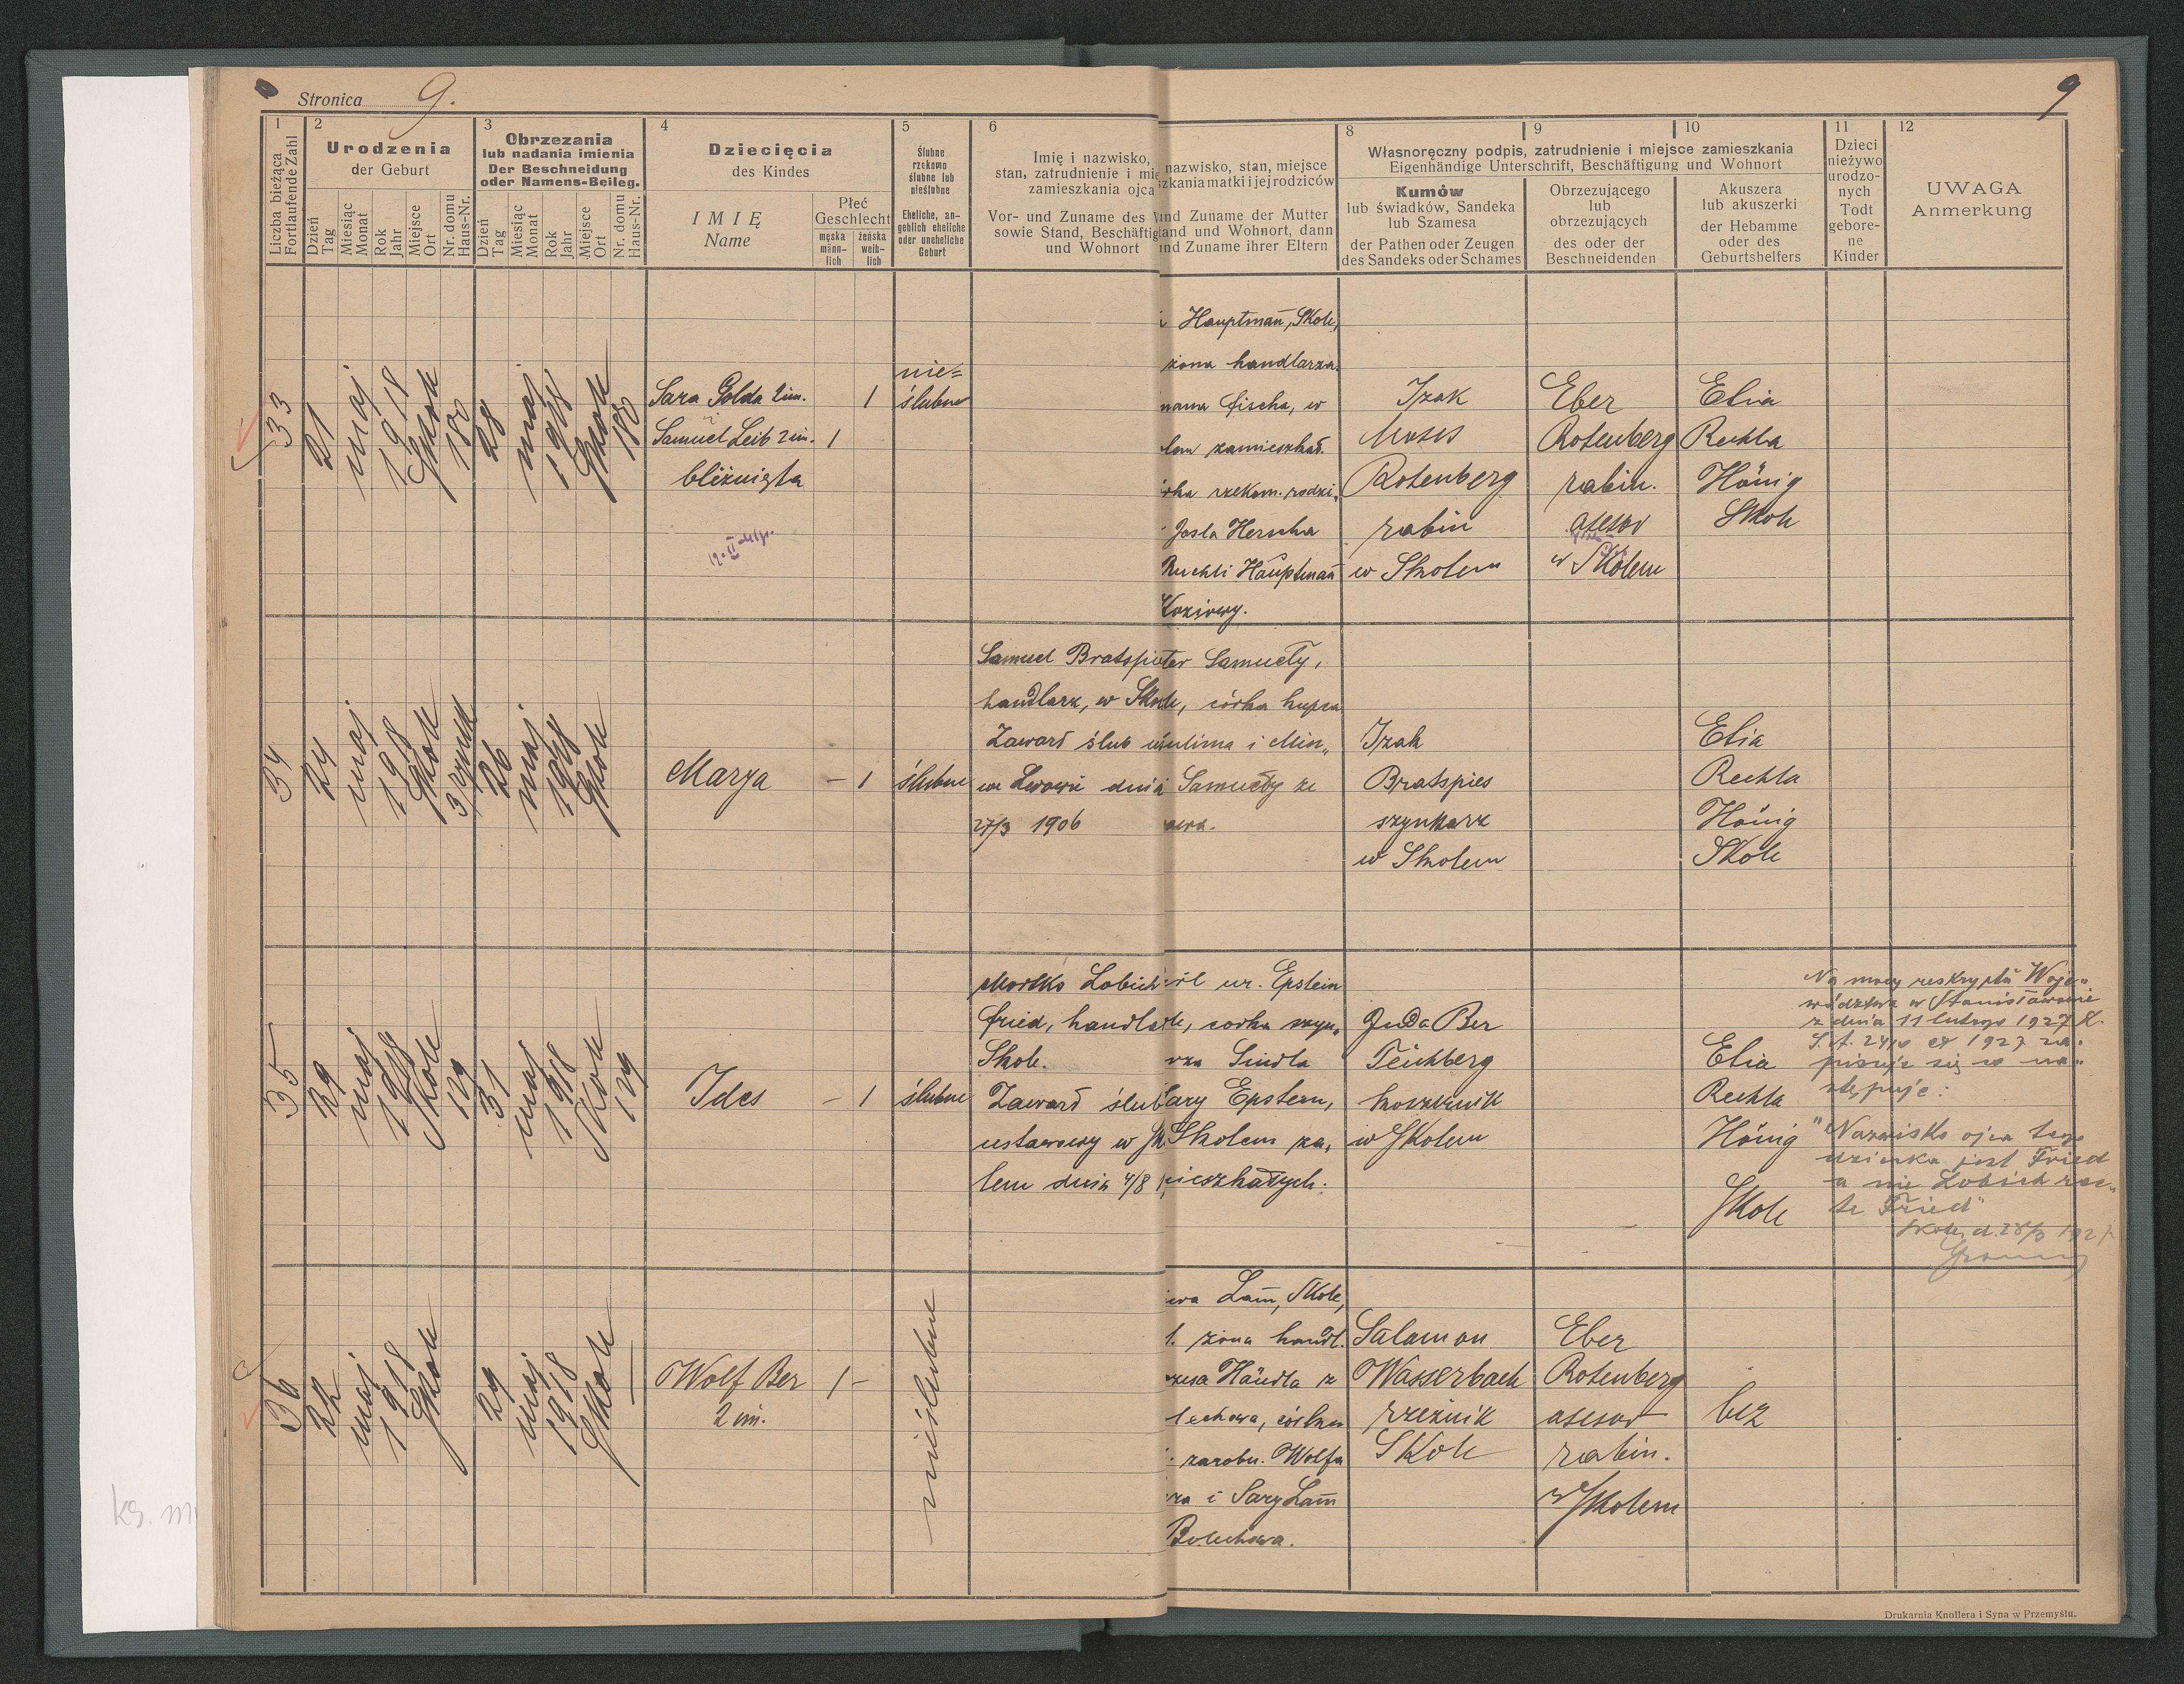 Stronica 9.
9
1
Liczba bieżąca
Fortlaufende Zahl
2
Urodzenia
der Geburt
Dzień
Tag
Miesiąc
Monat
Rok
Jahr
Miejsce
Ort
Nr. domu
Haus-Nr.
3
Obrzezania
lub nadania imienia
Der Beschneidung
oder Namens-Beileg.
Dzień
Tag
Miesiąc
Monat
Rok
Jahr
Miejsce
Ort
Nr. domu
Haus-Nr.
4
Dziecięcia
des Kindes
IMIĘ
Name
Płeć
Geschlecht
męska
männ-
lich
żeńska
weib-
lich
5
Ślubne
rzekomo
ślubne lub
nieślubne
Eheliche, an-
geblich eheliche
oder uneheliche
Geburt
6
Imię i nazwisko,
stan, zatrudnienie i mie
zamieszkania ojca
Vor- und Zuname des V
sowie Stand, Beschäftig
und Wohnort
nazwisko, stan, miejsce
zkania matki i jej rodziców
und Zuname der Mutter
tand und Wohnort, dann
und Zuname ihrer Eltern
8
Własnoręczny podpis, zatrudnienie i miejsce zamieszkania
Eigenhändige Unterschrift, Beschäftigung und Wohnort
Kumów
lub świadków, Sandeka
lub Szamesa
der Pathen oder Zeugen
des Sandeks oder Schames
9
Obrzezującego
lub
obrzezujących
des oder der
Beschneidenden
10
Akuszera
lub akuszerki
der Hebamme
oder des
Geburtshelfers
11
Dzieci
nieżywo
urodzo-
nych
Todt
gebore-
ne
Kinder
12
UWAGA
Anmerkung
33
21
maj
1918
Skole
180
28
maj
1918
Skole
180
Sara Golda 2 im.
1
Samuel Leib 2 im.
1
bliźnięta
nie=
ślubne
Hauptman̄, Skole,
żona handlarza
nana Fischa, w
lem zamieszkał.
rka rzekom. rodzi„
Josla Herscha
Ruchli Hauptman̄
Koziowy.
Izak
Moses
Rotenberg
rabin
w Skolem
Eber
Rotenberg
rabin.
asesor
w Skolem
Elia
Rechla
Hönig
Skole
34
24
maj
1918
Skole
26
maj
1918
Skole
Marya
– 1
ślubne
Samuel Bratspie
handlarz, w Skole
Zawarł ślub
we Lwowie dnia
27/3 1906
ter Samuely,
le, córka kupca
ulima i Min„
Samuely ze
Izak
Bratspies
szynkarz
w Skolem
Elia
Rechla
Hönig
Skole
35
29
maj
1918
Skole
129
31
maj
1918
Skole
129
Ides
– 1
ślubne
Mortko Lobich
Fried, handla
Skole.
Zawarł ślub
ustawowy w Sk
lem dnia 4/8
ur. Epstein
le, corka szyn„
rza Sindla
Sary Epstein,
Skolem za,
ieszkałych.
Juda Ber
Teichberg
koszernik
w Skolem
Elia
Rechla
Hönig
Skole
Na mocy reskryptu Woje„
wództwa w Stanisławowie
z dnia 11 lutego 1927 R.
L. A. 24/10 ex 1927 za„
pisuje się co na„
stępuje:
"Nazwisko ojca tego
dziecka jest Fried
a nie Lobich rec„
te Fried"
Skole, d. 28/3 1927
36
22
maj
1918
Skole
29
maj
1918
Skole
Wolf Ber
1 –
2 im.
nieślubne
Lam̄, Skole,
żona handl.
Händla z
lechowa, córka
zarobn. Wolfa
ra i Sary Lam̄
Bolechowa.
Salamon
Wasserbach
rzeźnik
Skole
Eber
Rotenberg
asesor
rabin.
w Skolem
bez
ks. m
Drukarnia Knollera i Syna w Przemyślu.